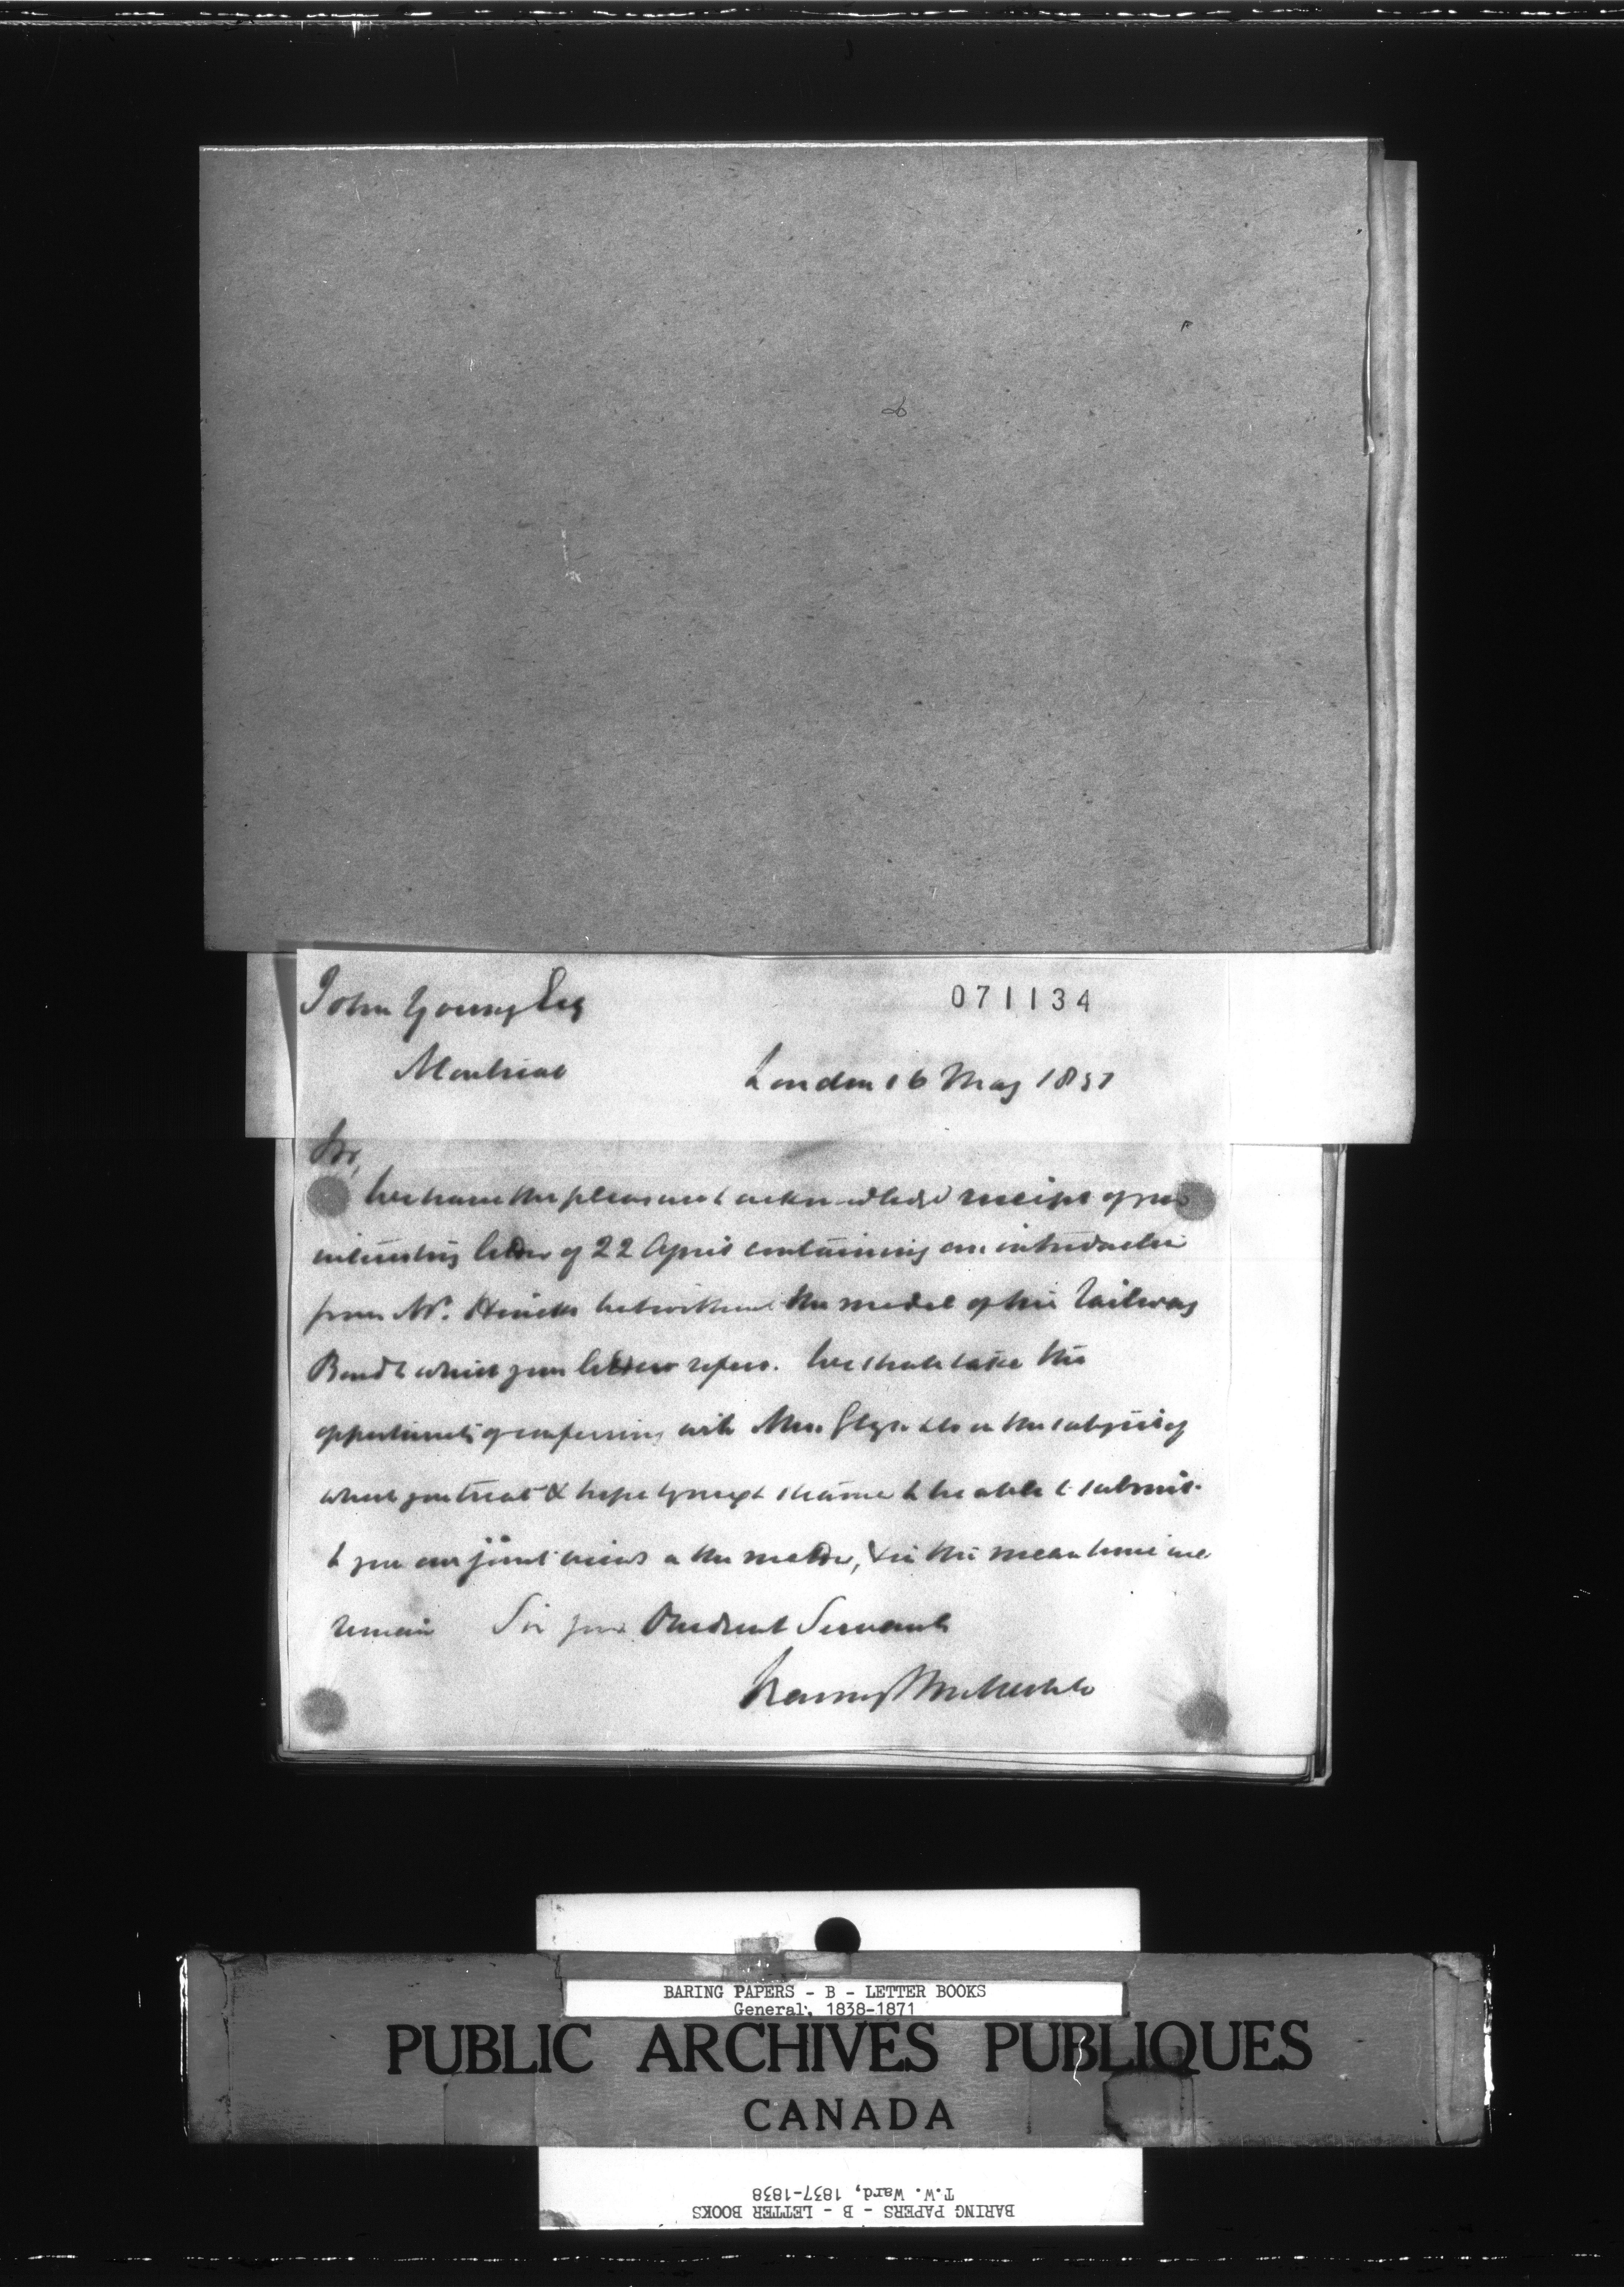 John Young Esq
071134
Montreal
London 16 May 1851
Sir,
We have the pleasure to acknowledge receipt of your
interesting letter of 22 April containing an introduction
from Mr. Hincks but without the model of his Railway
Bond to which your letter refers. We shall take the
opportunity of conferring with Mess. Glyn & Co on the subject of
which you treat & hope by next steamer to be able to submit
to you our joint views on the matter, & in the meantime we
remain Sir your Obedient Servants
Baring Brothers & Co
BARING PAPERS - B - LETTER BOOKS
General, 1838-1871
PUBLIC ARCHIVES PUBLIQUES
CANADA
BARING PAPERS - B - LETTER BOOKS
T.W. Ward, 1837-1838